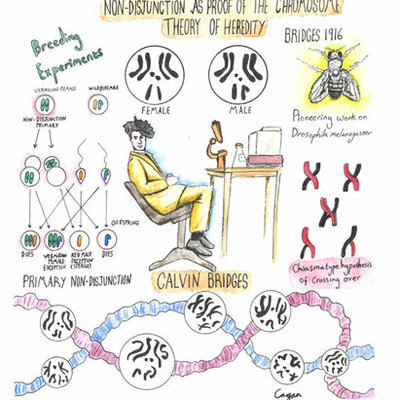 NON-DISJUNCTION AS PROOF OF THE CHROMOSOME
THEORY OF HEREDITY
Breeding
Experiments
BRIDGES 1916
VERMILION FEMALE
WILD MALE
NON-DISJUNCTION
PRIMARY
FEMALE
MALE
Pioneering work on
Drosophila melanogaster
OFFSPRING
DIES
VERMILION
FEMALE
EXCEPTION
RED MALE
EXCEPTION
(STERILE)
DIES
PRIMARY NON-DISJUNCTION
CALVIN BRIDGES
Chiasmatype hypothesis
of Crossing over